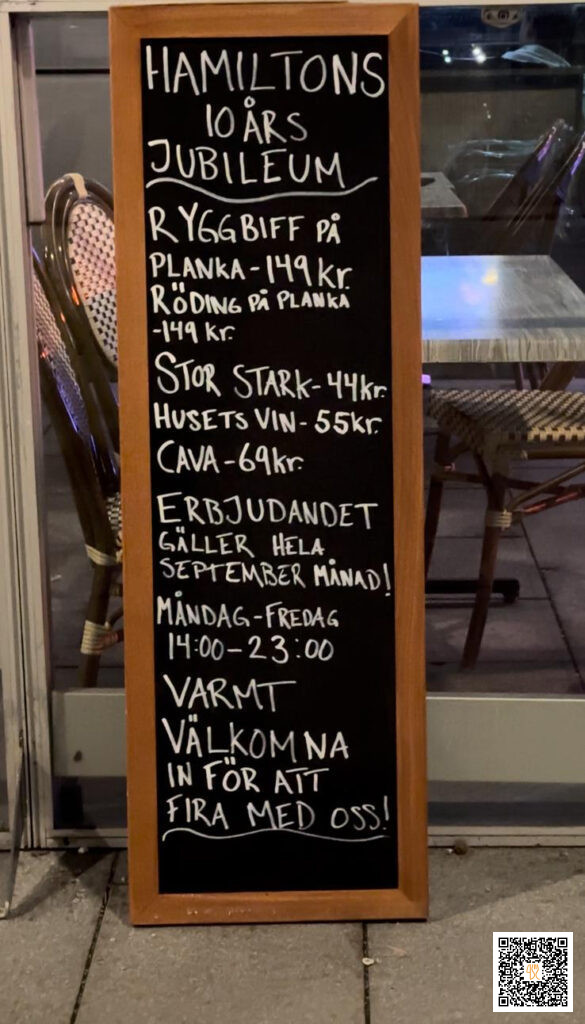 HAMILTONS
10 ÅRS
JUBILEUM
RYGGBIFF PÅ
PLANKA - 149 kr.
RÖDING PÅ PLANKA
-149 kr.
STOR STARK - 44kr.
HUSETS VIN - 55kr.
CAVA - 69kr.
ERBJUDANDET
GÄLLER HELA
SEPTEMBER MÅNAD!
MÅNDAG-FREDAG
14:00 - 23:00
VARMT
VÄLKOMNA
IN FÖR ATT
FIRA MED OSS!